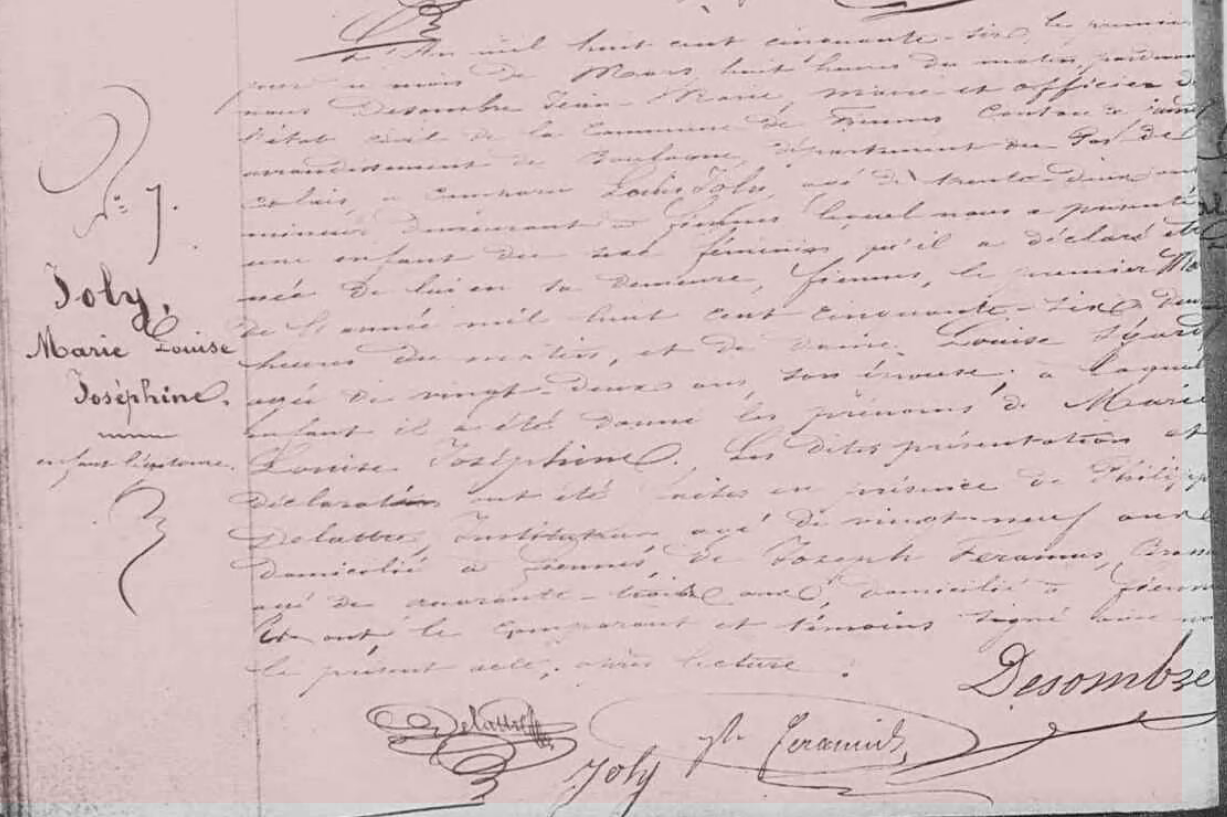 L'An mil huit cent cinquante-six, le premier
jour du mois de Mars, huit heures du matin pardevant
nous Desombre Jean-Marie, maire et officier de
l'état civil de la Commune de Fiennes Canton de
arrondissement de Boulogne, département du Pas de
Calais, a comparu Louis Joly, agé de trente-deux ans
mineur demeurant à Fiennes lequel nous a présenté
une enfant du sexe féminin qu'il a déclaré être
née de lui en sa demeure, Fiennes, le premier Mars
de l'année mil huit cent cinquante-six, deux
heures du matin, et de Louise
agée de vingt-deux ans, son épouse, à laquel
enfant il a été donné les prénoms de Marie
Louise Joséphine. Les dites présentation et
déclaration ont été faites en présence de Philippe
Delattre, Instituteur agé de vingt-neuf ans
domicilié à Fiennes, de Joseph Feramus,
agé de quarante-trois ans, domicilié à Fiennes
Et ont, le comparant et témoins signé avec nous
le présent acte, après lecture.
N° 7.
Joly,
Marie Louise
Joséphine.
enfant légitime.
Desombre
Delattre
Joly